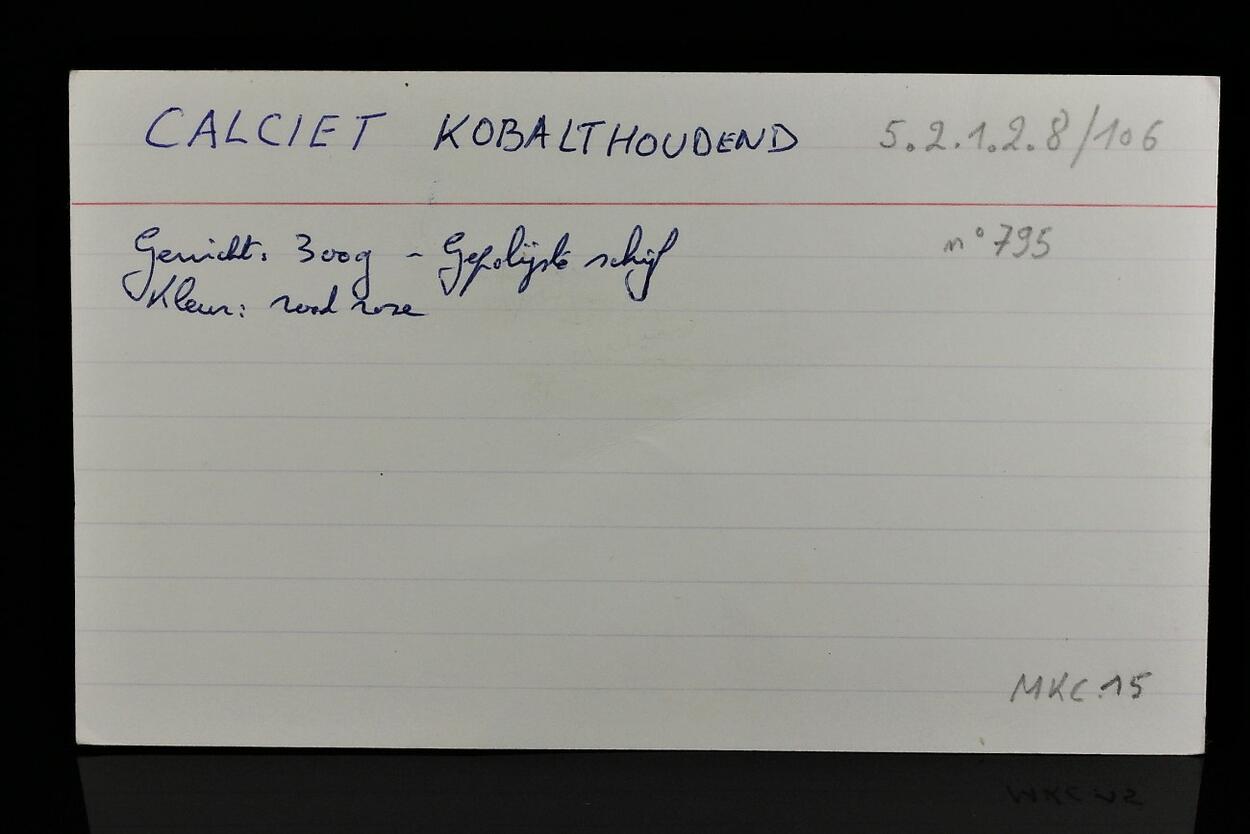 CALCIET KOBALTHOUDEND 5.2.1.2.8/106
Gewicht: 300g - Gepolijste schijf n° 795
Kleur: rood rose
MKC.15